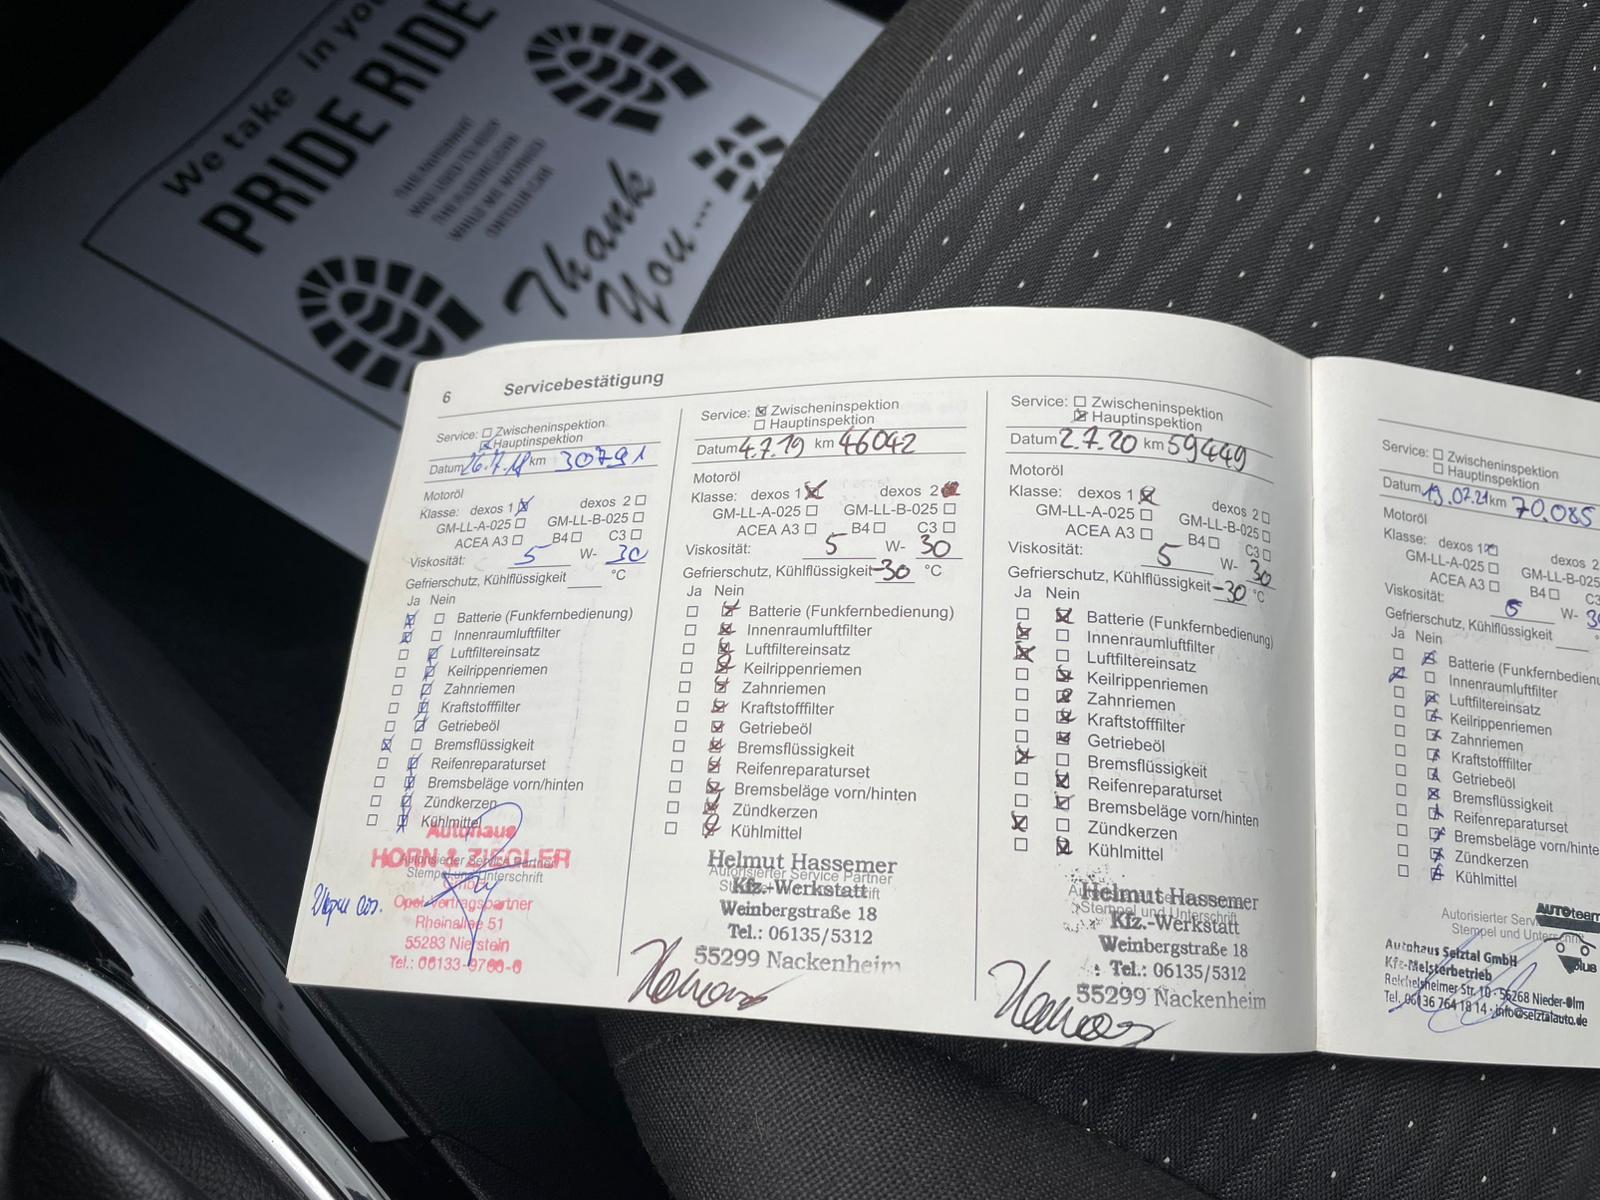 We take in you
PRIDE RIDE
Thank
You...
6 Servicebestätigung
Service: Zwischeninspektion
Hauptinspektion
Datum 26.7.18 km 30791
Motoröl
Klasse: dexos 1 dexos 2
GM-LL-A-025 GM-LL-B-025
ACEA A3 B4 C3
Viskosität: 5 W- 30
Gefrierschutz, Kühlflüssigkeit °C
Ja Nein
Batterie (Funkfernbedienung)
Innenraumluftfilter
Luftfiltereinsatz
Keilrippenriemen
Zahnriemen
Kraftstofffilter
Getriebeöl
Bremsflüssigkeit
Reifenreparaturset
Bremsbeläge vorn/hinten
Zündkerzen
Kühlmittel
Autohaus
HORN & ZIEGLER
Autorisierter Service Partner
Stempel und Unterschrift
GmbH
Opel-Vertragspartner
Rheinallee 51
55283 Nierstein
Tel.: 06133-9760-0
Service: Zwischeninspektion
Hauptinspektion
Datum 4.7.19 km 46042
Motoröl
Klasse: dexos 1 dexos 2
GM-LL-A-025 GM-LL-B-025
ACEA A3 B4 C3
Viskosität: 5 W- 30
Gefrierschutz, Kühlflüssigkeit -30 °C
Ja Nein
Batterie (Funkfernbedienung)
Innenraumluftfilter
Luftfiltereinsatz
Keilrippenriemen
Zahnriemen
Kraftstofffilter
Getriebeöl
Bremsflüssigkeit
Reifenreparaturset
Bremsbeläge vorn/hinten
Zündkerzen
Kühlmittel
Helmut Hassemer
Autorisierter Service Partner
Kfz.-Werkstatt
Weinbergstraße 18
Tel.: 06135/5312
55299 Nackenheim
Service: Zwischeninspektion
Hauptinspektion
Datum 2.7.20 km 59449
Motoröl
Klasse: dexos 1 dexos 2
GM-LL-A-025 GM-LL-B-025
ACEA A3 B4 C3
Viskosität: 5 W- 30
Gefrierschutz, Kühlflüssigkeit -30 °C
Ja Nein
Batterie (Funkfernbedienung)
Innenraumluftfilter
Luftfiltereinsatz
Keilrippenriemen
Zahnriemen
Kraftstofffilter
Getriebeöl
Bremsflüssigkeit
Reifenreparaturset
Bremsbeläge vorn/hinten
Zündkerzen
Kühlmittel
Helmut Hassemer
Stempel und Unterschrift
Kfz.-Werkstatt
Weinbergstraße 18
Tel.: 06135/5312
55299 Nackenheim
Service: Zwischeninspektion
Hauptinspektion
Datum 19.07.21 km 70.085
Motoröl
Klasse: dexos 1 dexos
GM-LL-A-025 GM-LL-B-025
ACEA A3 B4 C3
Viskosität: 5 W- 30
Gefrierschutz, Kühlflüssigkeit
Ja Nein
Batterie (Funkfernbedienu
Innenraumluftfilter
Luftfiltereinsatz
Keilrippenriemen
Zahnriemen
Kraftstofffilter
Getriebeöl
Bremsflüssigkeit
Reifenreparaturset
Bremsbeläge vorn/hinte
Zündkerzen
Kühlmittel
Autorisierter Serv
Stempel und Unterschrift
AUTOteam
plus
Autohaus Selztal GmbH
Kfz-Meisterbetrieb
Reichelsheimer Str. 10 · 55268 Nieder-Olm
Tel. 06136 764 18 14 · info@selztalauto.de